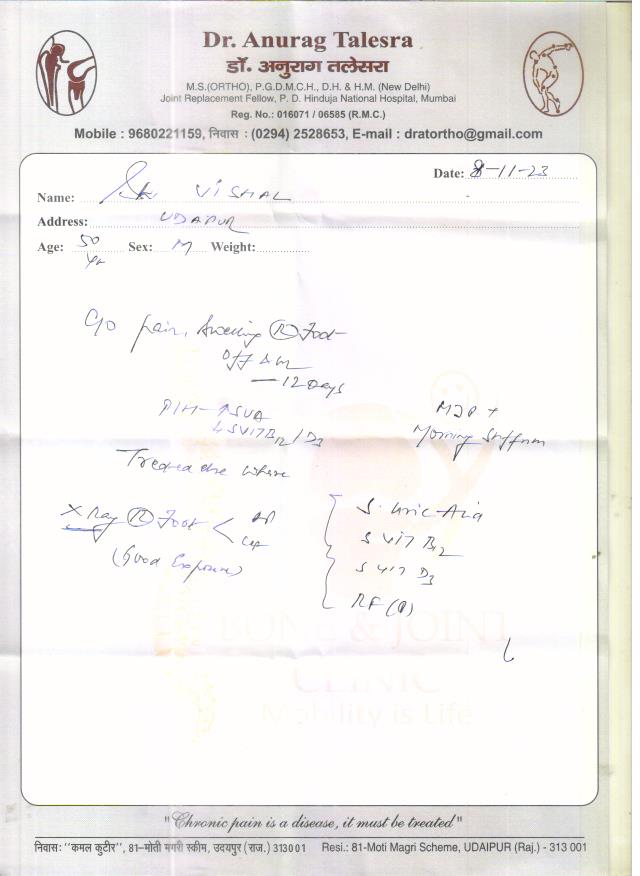 Dr. Anurag Talesra
डॉ. अनुराग तलेसरा
M.S.(ORTHO), P.G.D.M.C.H., D.H. & H.M. (New Delhi)
Joint Replacement Fellow, P. D. Hinduja National Hospital, Mumbai
Reg. No.: 016071 / 06585 (R.M.C.)
Mobile : 9680221159, निवास : (0294) 2528653, E-mail : dratortho@gmail.com
Date: 8-11-23
Name: VISHAL
Address: UDAIPUR
Age: 50 yr Sex: M Weight:
C/o pain, Swelling (R) Foot
Off & on
— 12 Days
P/H - ↑SUA
↓ SVIT B12/D3
MJP +
Morning Stiffness
Treated else where
X Ray (R) Foot < AP
(Good Exposure)
S. Uric Acid
S VIT B12
S VIT D3
RF (Q)
BONE & JOINT
CLINIC
Mobility is Life
"Chronic pain is a disease, it must be treated"
निवास: "कमल कुटीर", 81-मोती मगरी स्कीम, उदयपुर (राज.) 313001 Resi.: 81-Moti Magri Scheme, UDAIPUR (Raj.) - 313 001